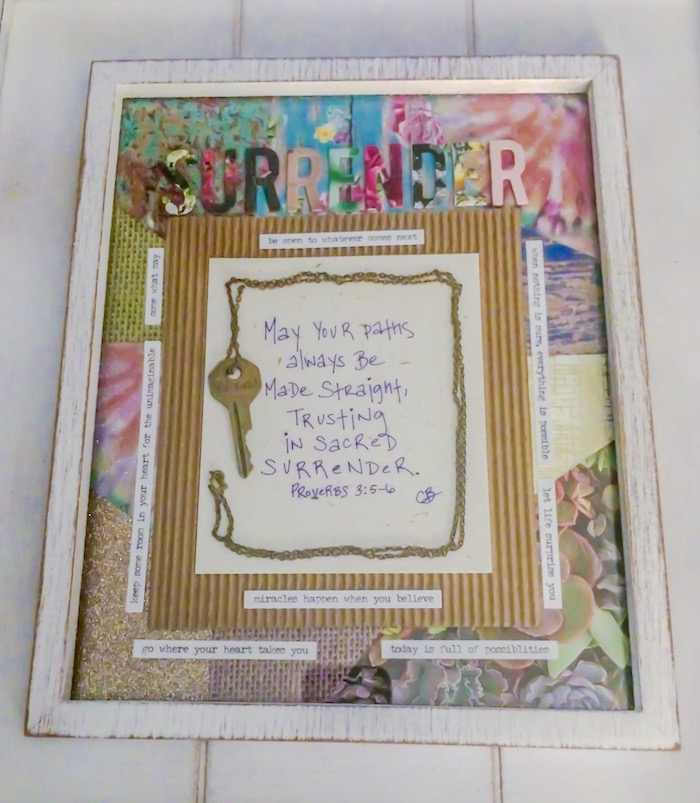 SURRENDER
be open to whatever comes next
come what may
keep some room in your heart for the unimaginable
when nothing is sure, everything is possible
let life surprise you
May Your paths
always Be
Made Straight,
Trusting
in Sacred
Surrender.
Proverbs 3:5-6
CB
miracles happen when you believe
go where your heart takes you
today is full of possiblities